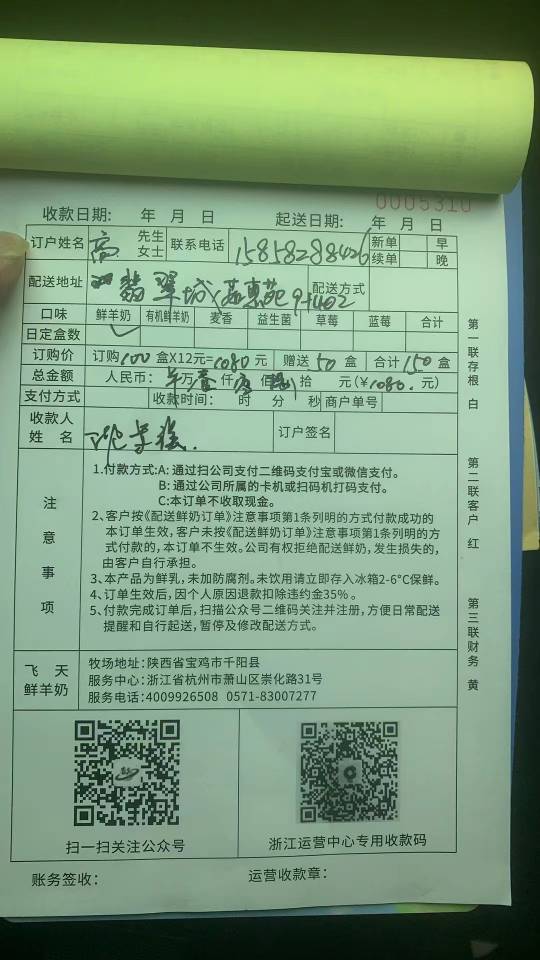 0005310
收款日期: 年 月 日 起送日期: 年 月 日
订户姓名 高 先生 女士 联系电话 15858288426 新单 续单 早 晚
配送地址 翡翠城 配送方式
口味 鲜羊奶 有机鲜羊奶 麦香 益生菌 草莓 蓝莓 合计
日定盒数
订购价 订购100盒X12元=1080元 赠送50盒 合计150盒
总金额 人民币: 万壹仟 佰 拾 元(￥1080.元)
支付方式 收款时间: 时 分 秒 商户单号
收款人姓名 订户签名
注意事项
1.付款方式:A: 通过扫公司支付二维码支付宝或微信支付。
B: 通过公司所属的卡机或扫码机打码支付。
C:本订单不收取现金。
2、客户按《配送鲜奶订单》注意事项第1条列明的方式付款成功的
本订单生效,客户未按《配送鲜奶订单》注意事项第1条列明的方
式付款的,本订单不生效。公司有权拒绝配送鲜奶,发生损失的,
由客户自行承担。
3、本产品为鲜乳,未加防腐剂。未饮用请立即存入冰箱2-6°C保鲜。
4、订单生效后,因个人原因退款扣除违约金35%。
5、付款完成订单后,扫描公众号二维码关注并注册,方便日常配送
提醒和自行起送,暂停及修改配送方式。
飞天鲜羊奶
牧场地址:陕西省宝鸡市千阳县
服务中心:浙江省杭州市萧山区崇化路31号
服务电话:4009926508 0571-83007277
扫一扫关注公众号 浙江运营中心专用收款码
账务签收: 运营收款章:
第一联存根 白
第二联客户 红
第三联财务 黄